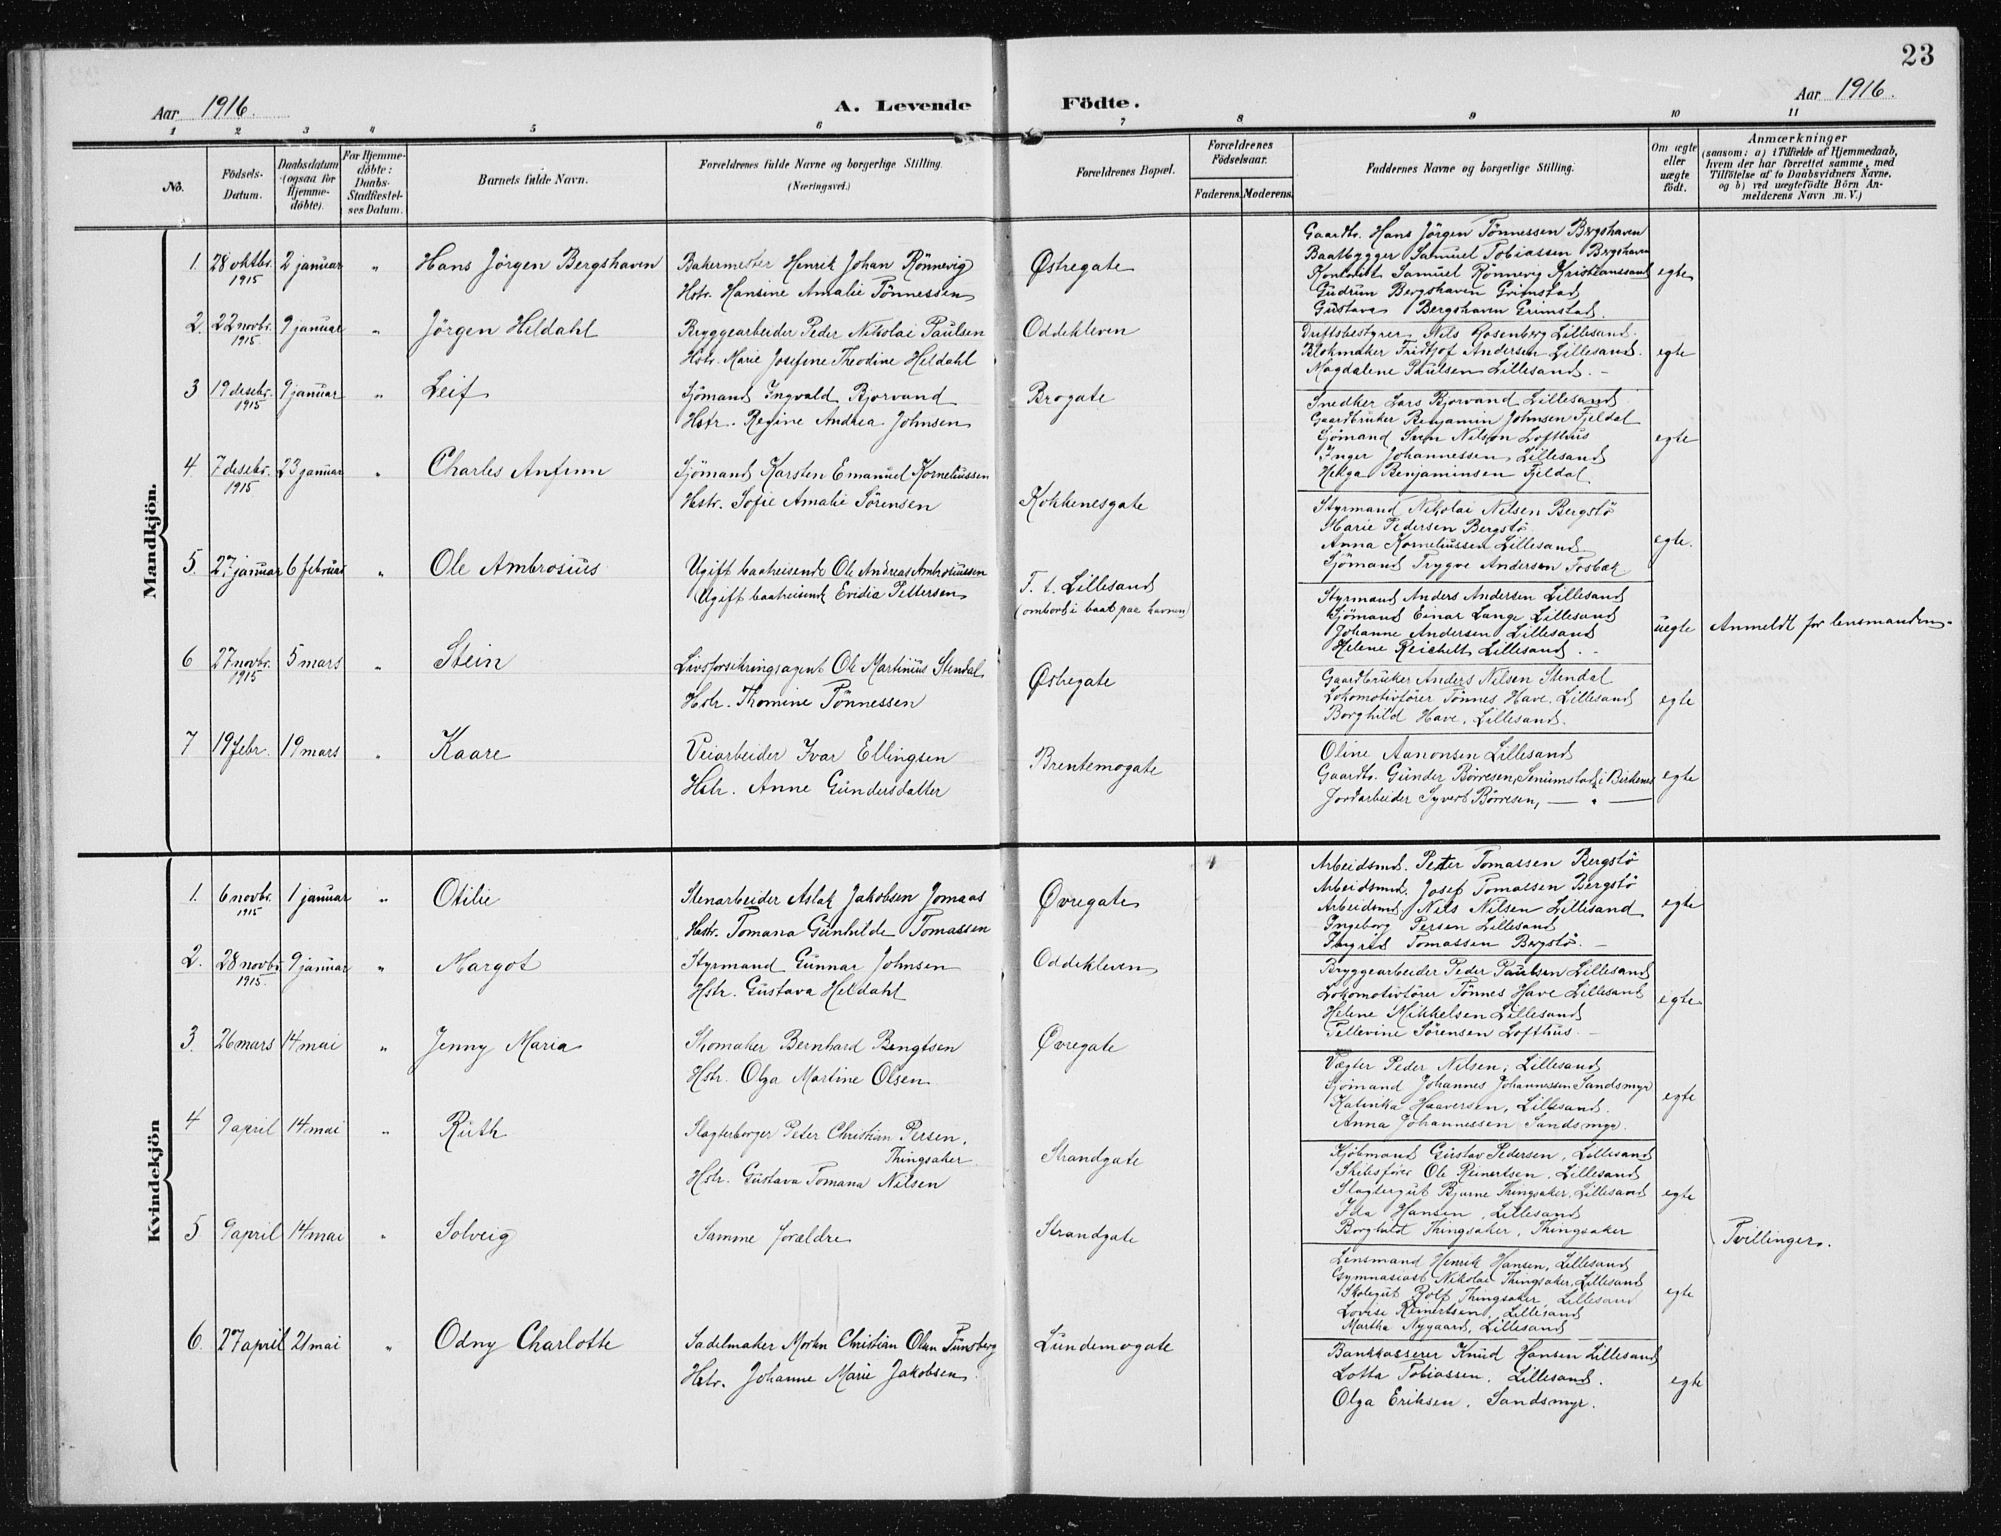 23
Aar 1916.
A. Levende
Födte.
Aar 1916.
1 2 3 4 5 6 7 8 9 10 11
No.
Födsels-
Datum.
Daabsdatum
(ogsaa for
Hjemme-
döbte).
For Hjemme-
döbte:
Daabs-
Stadfæstel-
ses Datum.
Barnets fulde Navn.
Forældrenes fulde Navne og borgerlige Stilling.
(Næringsvei.)
Forældrenes Bopæl.
Forældrenes
Födselsaar.
Faderens. Moderens.
Faddernes Navne og borgerlige Stilling.
Om ægte
eller
uægte
födt.
Anmærkninger
(saasom: a) i Tilfælde af Hjemmedaab,
hvem der har forrettet samme, med
Tilföielse af to Daabsvidners Navne,
og b) ved uægtefödte Börn An-
melderens Navn m. V.)
Mandkjön.
1. 28 oktbr. 1915 2 januar " Hans Jörgen Bergshaven
Bakermester Henrik Johan Rönnevig
Hstr. Hansine Amalie Tönnessen
Østregate
Gaardbr. Hans Jörgen Tönnessen Bergshaven
Baatbygger Samuel Tobiassen Bergshaven
Kontorist Samuel Rönnevig Kristianssand
Gudrun Bergshaven Grimstad
Gustava Bergshaven Grimstad.
egte
2. 22 novbr. 1915 9 januar " Jörgen Heldahl
Bryggearbeider Peder Nikolai Paulsen
Hstr. Marie Josefine Theodine Heldahl
Oddekleven
Driftsbestyrer Nils Rosenberg Lillesand.
Blokmaker Fridtjof Andersen Lillesand.
Magdalene Paulsen Lillesand. -
egte
3 19 desebr. 1915 9 januar " Leif
Sjömand Ingvald Bjorvand
Hstr. Regine Andrea Johnsen
Brogate
Snedker Lars Bjorvand Lillesand
Gaardbruker Benjamin Johnsen Fjeldal
Sjömand Sven Nilson Lofthus
Inger Johannessen Lillesand
Helga Benjaminsen Fjeldal
egte
4 7 desebr. 1915 23 januar " Charles Anfinn
Sjömand Karsten Emanuel Korneliussen
Hstr. Sofie Amalie Sörensen
Kokkenesgate
Styrmand Nikolai Nilsen Bergstö
Marie Pedersen Bergstö
Anna Korneliussen Lillesand
Sjömand Trygve Andersen Fosbæk
egte.
5. 27 januar 6 februar " Ole Ambrosius
Ugift baatreisende Ole Andreas Ambrosiussen
Ugift baatreisende Evidia Pettersen
F. t. Lillesand
(ombord i baat paa havnen)
Styrmand Anders Andersen Lillesand
Sjömand Einar Lange Lillesand
Johanne Andersen Lillesand
Helene Reichelt Lillesand. -
uegte Anmeldt for lensmanden.
6 27 novbr. 1915 5 mars " Stein
Livsforsikringsagent Ole Martinius Stendal
Hstr. Thomine Tönnessen
Østregate
Gaardbruker Anders Nilsen Stendal
Lokomotivförer Tönnes Have, Lillesand
Borghild Have, Lillesand.
egte
7 19 febr. 19 mars " Kaare
Veiarbeider Ivar Ellingsen
Hstr. Anne Gundersdatter
Brentemogate
Oline Aanonsen Lillesand
Gaardbr. Gunder Börresen, Senumstad i Birkenes
Jordarbeider Syvert Börresen, — " —
egte
Kvindekjön
1. 6 novbr. 1915 1 januar " Otilie
Stenarbeider Aslak Jakobsen Jomaas
Hstr. Tomana Gunhilde Tomassen
Øvregate
Arbeidsmd. Peter Tomassen Bergstö
Arbeidsmd. Josef Tomassen Bergstö
Arbeidsmd. Nils Nilsen Lillesand
Ingeborg Persen Lillesand
Ingrid Tomassen Bergstö. -
egte
2. 28 novbr. 1915. 9 januar " Margot
Styrmand Gunnar Johnsen
Hstr. Gustava Heldahl
Oddekleven
Bryggearbeider Peder Paulsen Lillesand
Lokomotivförer Tönnes Have Lillesand
Helene Mikkelsen Lillesand
Pellevine Sörensen Lofthus. -
egte
3. 26 mars 14 mai " Jenny Maria
Skomaker Bernhard Bengtsen
Hstr. Olga Martine Olsen
Øvregate
Vægter Peder Nilsen, Lillesand
Sjömand Johannes Johannessen Sandsmyr
Kalinka Haaversen, Lillesand.
Anna Johannessen Sandsmyr.
egte
4 9 april 14 mai " Ruth
Slagterborger Peter Christian Persen,
Thingsaker
Hstr. Gustava Tomana Nilsen
Strandgate
Kjöbmand Gustav Pedersen, Lillesand
Skibsförer Ole Reinertsen, Lillesand
Slagtergut Bjarne Thingsaker, Lillesand
Ida Hansen, Lillesand
Borghild Thingsaker, Thingsaker
egte
5 9 april 14 mai " Solveig
Samme forældre
Strandgate
Lensmand Henrik Hansen, Lillesand
Gymnasiast Nikolai Thingsaker, Lillesand
Skolegut Rolf Thingsaker, Lillesand
Lovise Reinertsen, Lillesand
Martha Nygaard, Lillesand
egte
Tvillinger.
6. 27 april 21 mai " Odny Charlotte
Sadelmaker Morten Christian Olsen Tunsberg
Hstr. Johanne Marie Jakobsen
Lundemogate
Bankkasserer Knud Hansen Lillesand
Lotta Tobiassen, Lillesand.
Olga Eriksen, Sandsmyr.
egte